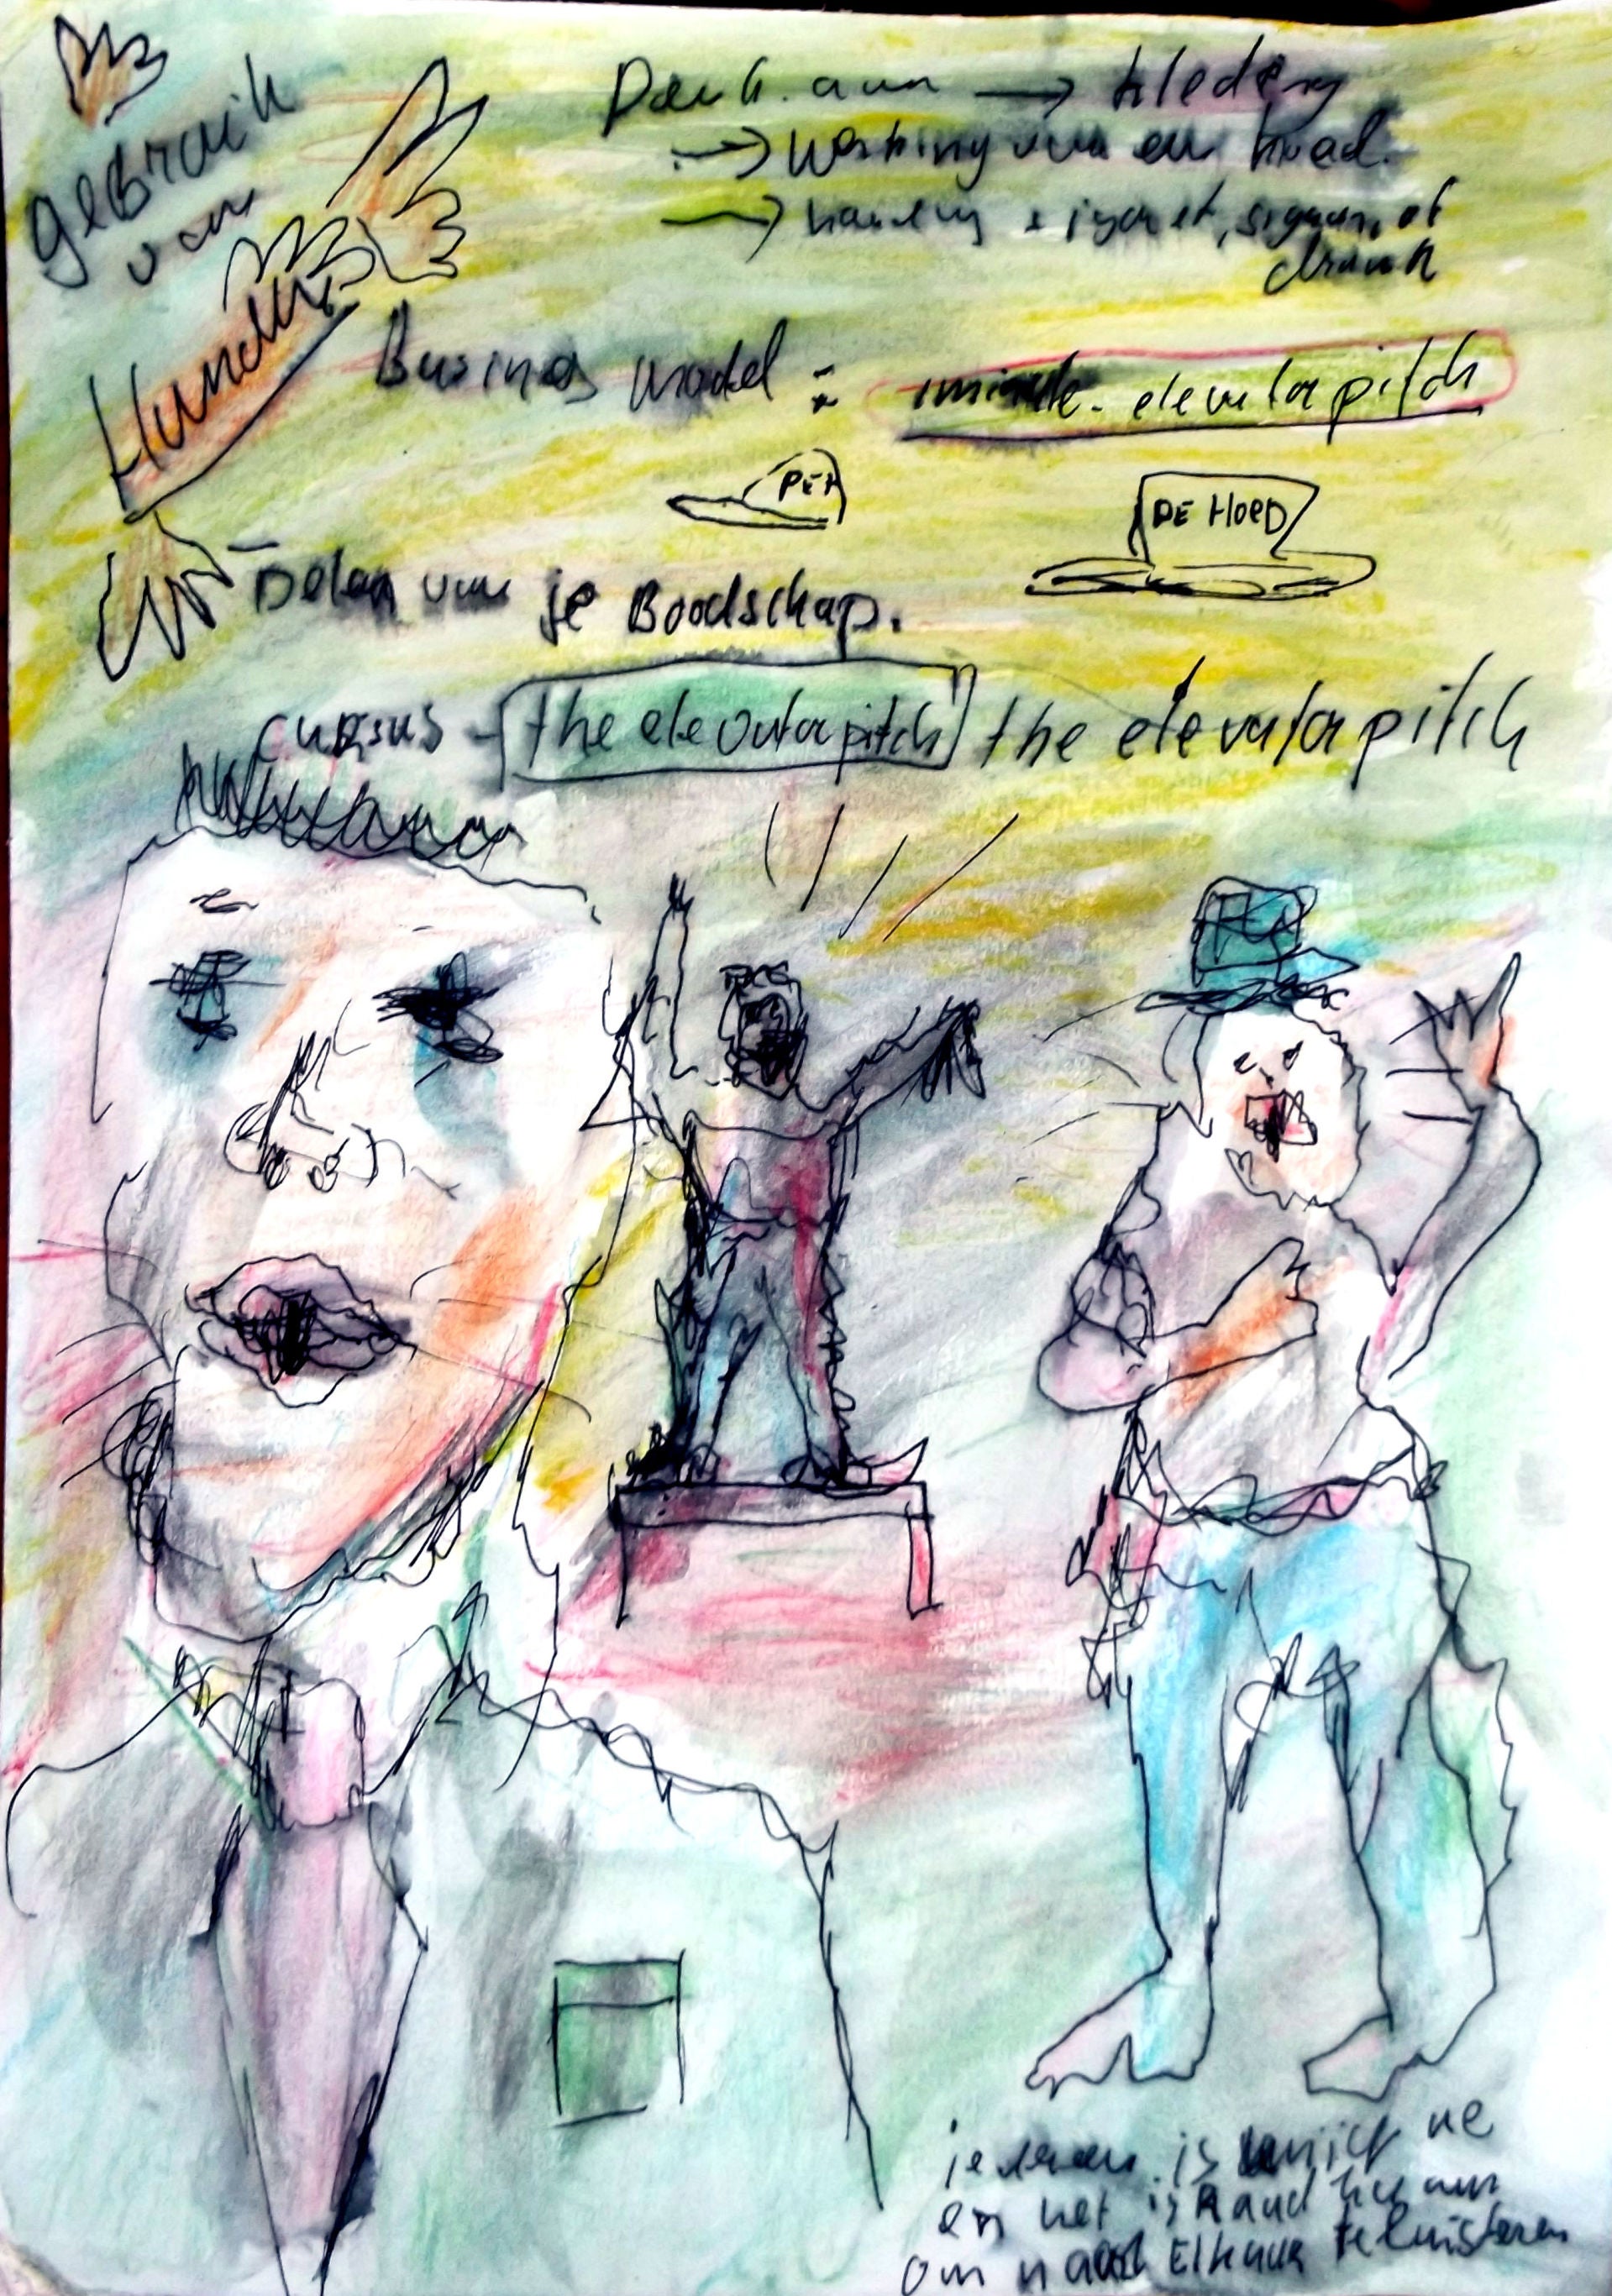 gebruik
van
Handen
Denk aan → kleding
→ werking van een hoed.
→ sigaret, sigaar, of
drank
Business model : 1 minute. elevator pitch
PET
DE HOED
Delen van je Boodschap.
cursus - the elevator pitch the elevator pitch
iedereen is uniek
en het is
om naar Elkaar te luisteren